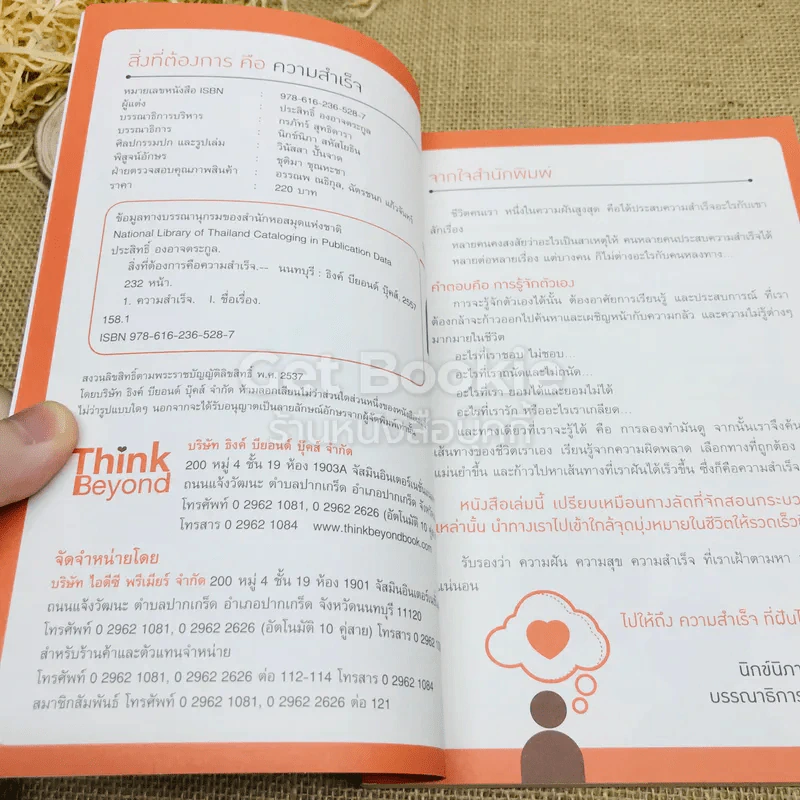 สิ่งที่ต้องการ คือ ความสำเร็จ
หมายเลขหนังสือ ISBN : 978-616-236-528-7
ผู้แต่ง : ประสิทธิ์ องอาจตระกูล
บรรณาธิการบริหาร : กรภัทร์ สุทธิดารา
บรรณาธิการ : นิกข์นิภา สหัสโยธิน
ศิลปกรรมปก และรูปเล่ม : วินัสสา ปั้นจาด
พิสูจน์อักษร : ชุติมา ชุณหะชา
ฝ่ายตรวจสอบคุณภาพสินค้า : อรรณพ ณธิกุล, ฉัตรชนก แก้วจันทร์
ราคา : 220 บาท
ข้อมูลทางบรรณานุกรมของสำนักหอสมุดแห่งชาติ
National Library of Thailand Cataloging in Publication Data
ประสิทธิ์ องอาจตระกูล.
สิ่งที่ต้องการคือความสำเร็จ.-- นนทบุรี : ธิงค์ บียอนด์ บุ๊คส์, 2557
232 หน้า.
1. ความสำเร็จ. I. ชื่อเรื่อง.
158.1
ISBN 978-616-236-528-7
สงวนลิขสิทธิ์ตามพระราชบัญญัติลิขสิทธิ์ พ.ศ. 2537
โดยบริษัท ธิงค์ บียอนด์ บุ๊คส์ จำกัด ห้ามลอกเลียนไม่ว่าส่วนใดส่วนหนึ่งของหนังสือ
ไม่ว่ารูปแบบใดๆ นอกจากจะได้รับอนุญาตเป็นลายลักษณ์อักษรจากผู้จัดพิมพ์เท่านั้น
Think
Beyond
บริษัท ธิงค์ บียอนด์ บุ๊คส์ จำกัด
200 หมู่ 4 ชั้น 19 ห้อง 1903A จัสมินอินเตอร์เนชั่นแนล
ถนนแจ้งวัฒนะ ตำบลปากเกร็ด อำเภอปากเกร็ด จังหวัด
โทรศัพท์ 0 2962 1081, 0 2962 2626 (อัตโนมัติ 10
โทรสาร 0 2962 1084 www.thinkbeyondbook.com
จัดจำหน่ายโดย
บริษัท ไอดีซี พรีเมียร์ จำกัด 200 หมู่ 4 ชั้น 19 ห้อง 1901 จัสมินอินเตอร์เนชั่น
ถนนแจ้งวัฒนะ ตำบลปากเกร็ด อำเภอปากเกร็ด จังหวัดนนทบุรี 11120
โทรศัพท์ 0 2962 1081, 0 2962 2626 (อัตโนมัติ 10 คู่สาย) โทรสาร 0 2962
สำหรับร้านค้าและตัวแทนจำหน่าย
โทรศัพท์ 0 2962 1081, 0 2962 2626 ต่อ 112-114 โทรสาร 0 2962 1084
สมาชิกสัมพันธ์ โทรศัพท์ 0 2962 1081, 0 2962 2626 ต่อ 121
จากใจสำนักพิมพ์
ชีวิตคนเรา หนึ่งในความฝันสูงสุด คือได้ประสบความสำเร็จอะไรกับเขา
สักเรื่อง
หลายคนคงสงสัยว่าอะไรเป็นสาเหตุให้ คนหลายคนประสบความสำเร็จได้
หลายต่อหลายเรื่อง แต่บางคน ก็ไม่ต่างอะไรกับคนหลงทาง...
คำตอบคือ การรู้จักตัวเอง
การจะรู้จักตัวเองได้นั้น ต้องอาศัยการเรียนรู้ และประสบการณ์ ที่เรา
ต้องกล้าจะก้าวออกไปค้นหาและเผชิญหน้ากับความกลัว และความไม่รู้ต่างๆ
มากมายในชีวิต
อะไรที่เราชอบ ไม่ชอบ...
อะไรที่เราถนัดและไม่ถนัด...
อะไรที่เรา ยอมได้และยอมไม่ได้
อะไรที่เรารัก หรืออะไรเราเกลียด...
และทางเดียวที่เราจะรู้ได้ คือ การลองทำมันดู จากนั้นเราจึงค้น
เส้นทางของชีวิตเราเอง เรียนรู้จากความผิดพลาด เลือกทางที่ถูกต้อง
แม่นยำขึ้น และก้าวไปหาเส้นทางที่เราฝันได้เร็วขึ้น ซึ่งก็คือความสำเร็จ
หนังสือเล่มนี้ เปรียบเหมือนทางลัดที่จักสอนกระบว
เหล่านั้น นำทางเราไปเข้าใกล้จุดมุ่งหมายในชีวิตให้รวดเร็ว
รับรองว่า ความฝัน ความสุข ความสำเร็จ ที่เราเฝ้าตามหา
แน่นอน
ไปให้ถึง ความสำเร็จ ที่ฝัน
นิกข์นิภา
บรรณาธิการ
Get Bookie
ร้านหนังสือเก่า